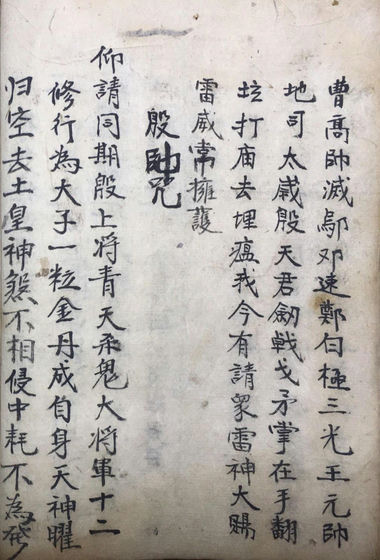 曹髙帥滅鄔邓速鄭白極三光王元帥
地司太歲殷天君劔戟戈矛掌在手翻
坛打庙去埋瘟我今有請衆雷神大賜
雷威常擁護
殷帥咒
仰請同期殷上将青天杀鬼大将軍十二
修行為大子一粒金丹成自身天神曜
归空去土皇神煞不相侵中耗不為